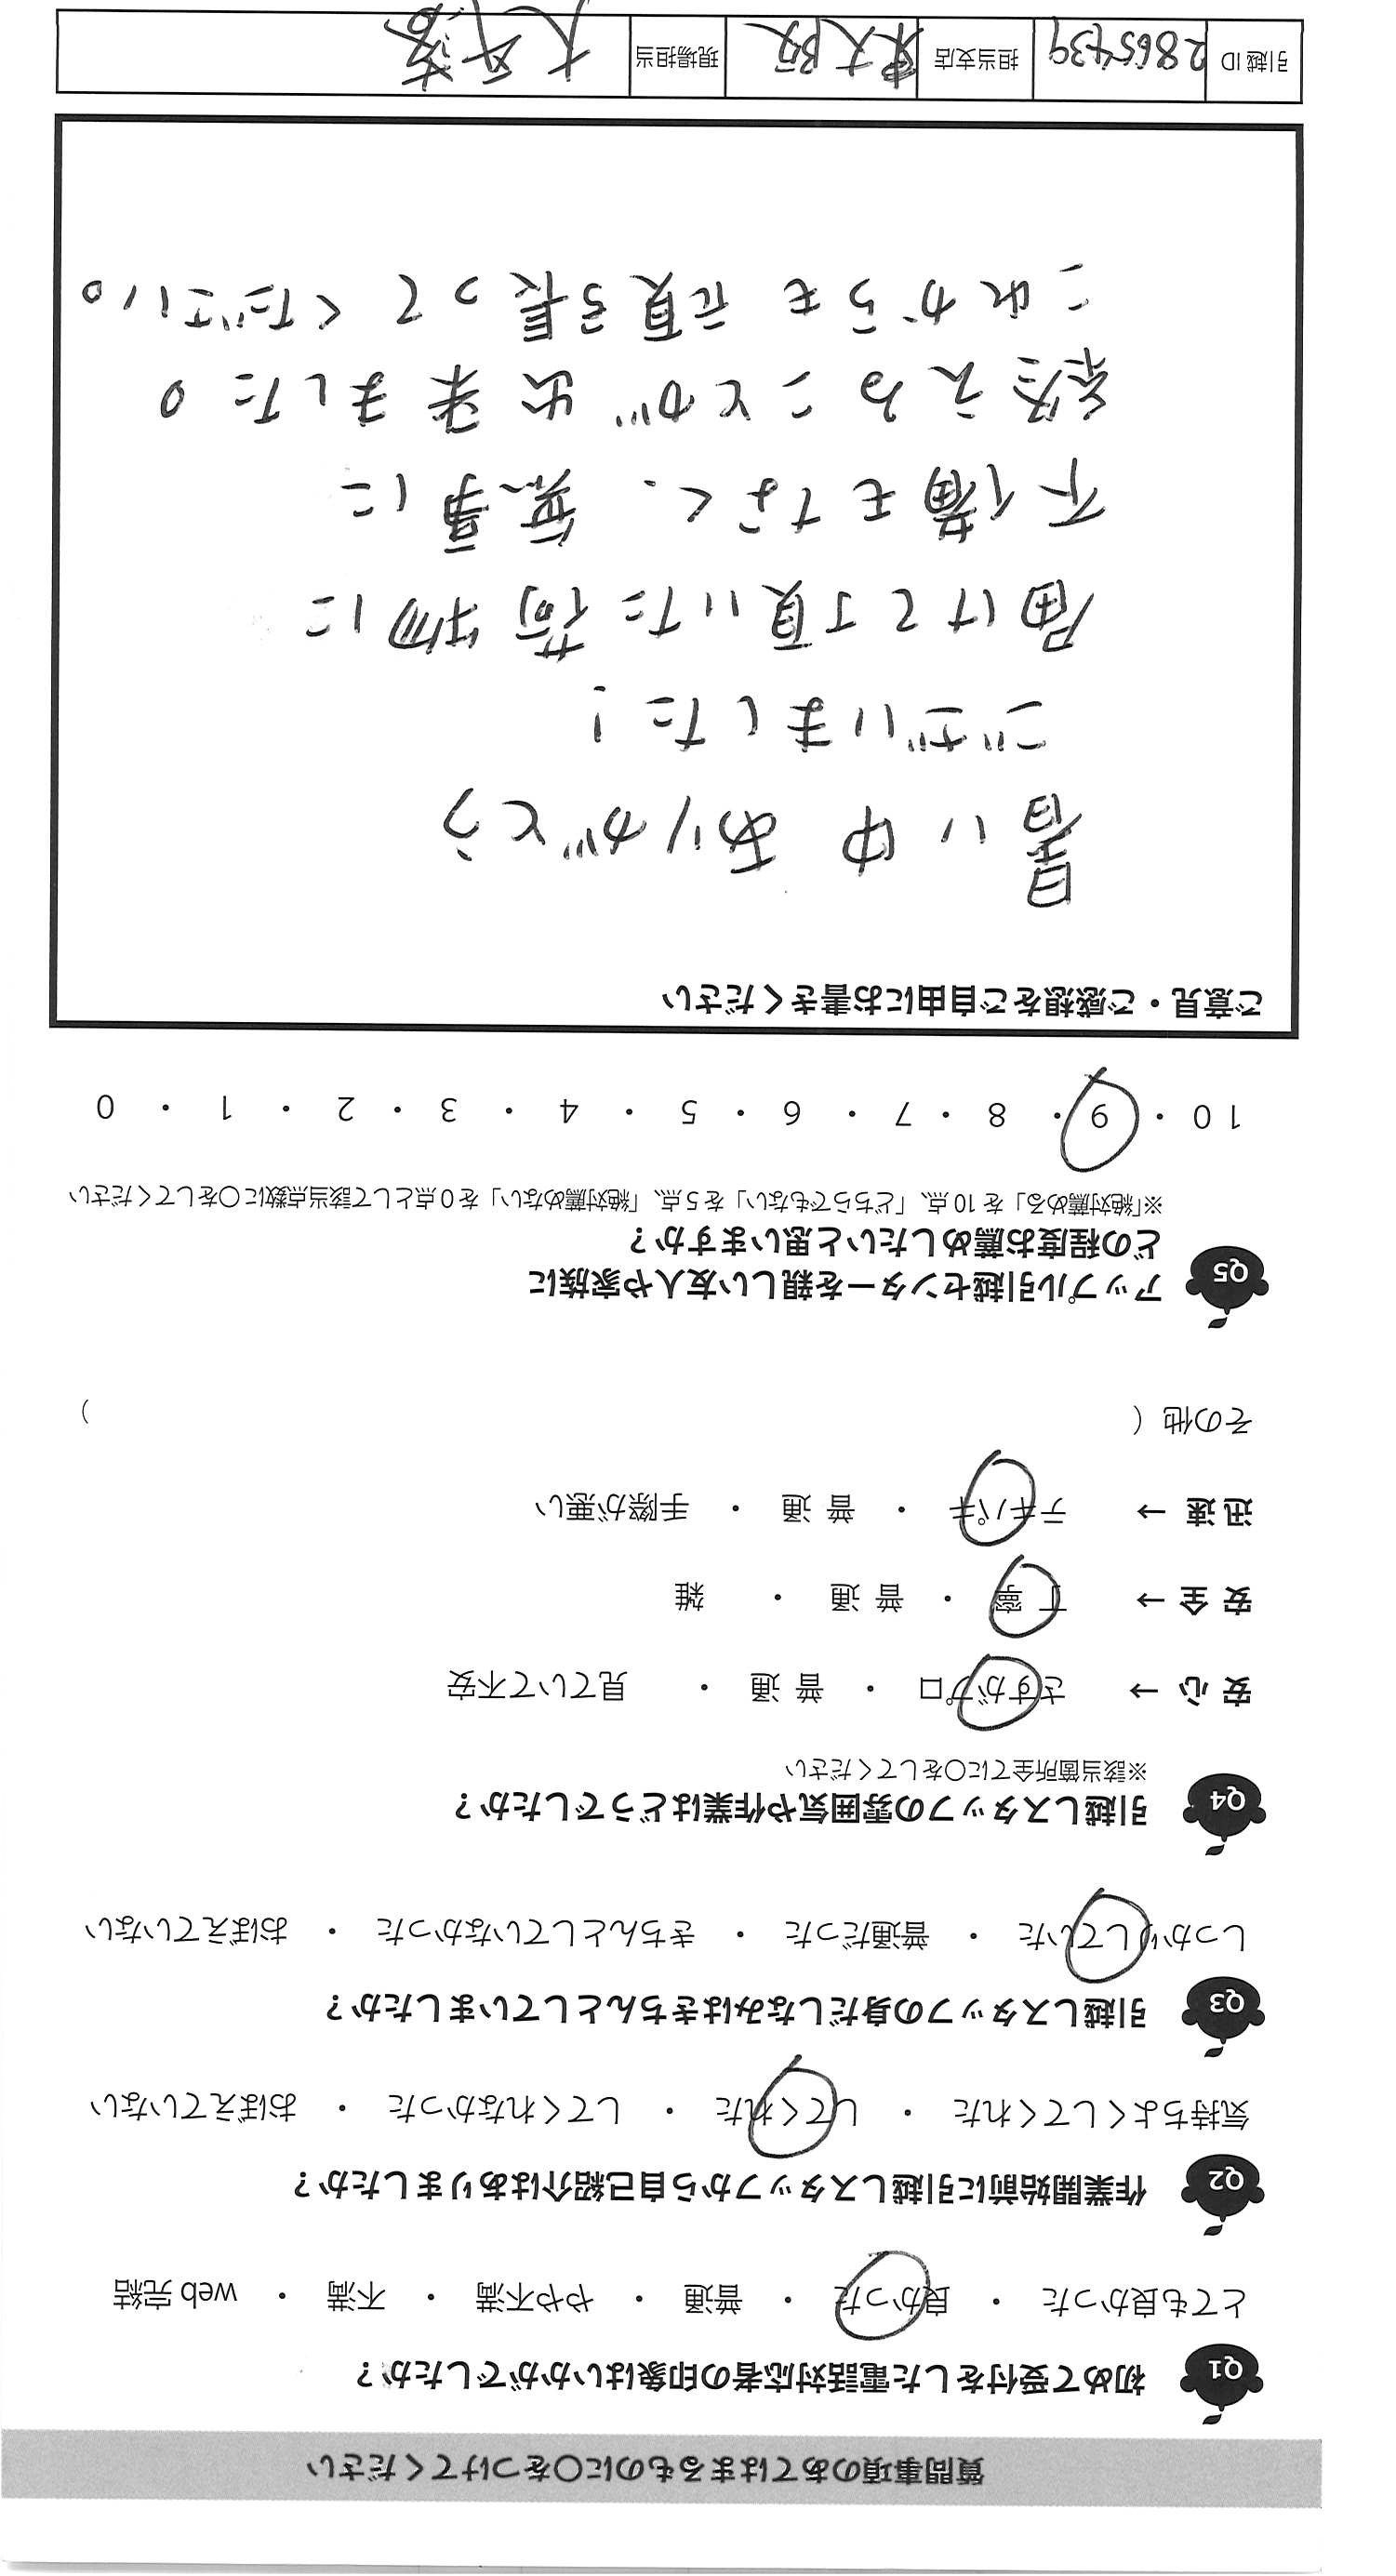 質問事項のあてはまるものに〇をつけてください
Q1 初めて受付をした電話対応者の印象はいかがでしたか？
とても良かった ・ 良かった ・ 普通 ・ やや不満 ・ 不満 ・ web 完結
Q2 作業開始前に引越しスタッフから自己紹介はありましたか？
気持ちよくしてくれた ・ してくれた ・ してくれなかった ・ おぼえていない
Q3 引越しスタッフの身だしなみはきちんとしていましたか？
しっかりしていた ・ 普通だった ・ きちんとしていなかった ・ おぼえていない
Q4 引越しスタッフの雰囲気や作業はどうでしたか？
※該当箇所全てに〇をしてください
安 心 → さすがプロ ・ 普 通 ・ 見ていて不安
安 全 → 丁 寧 ・ 普 通 ・ 雑
迅 速 → テキパキ ・ 普 通 ・ 手際が悪い
その他（ ）
Q5 アップル引越センターを親しい友人や家族に
どの程度お薦めしたいと思いますか？
※「絶対薦める」を 10 点、「どちらでもない」を 5 点、「絶対薦めない」を 0 点として該当点数に〇をしてください
10 ・ 9 ・ 8 ・ 7 ・ 6 ・ 5 ・ 4 ・ 3 ・ 2 ・ 1 ・ 0
ご意見・ご感想をご自由にお書きください
暑い中 ありがとう
ございました！
届けて頂いた荷物に
不備もなく、無事に
終えることが出来ました。
これからも頑張ってください。
引越 ID 2865439 担当支店 東大阪 現場担当